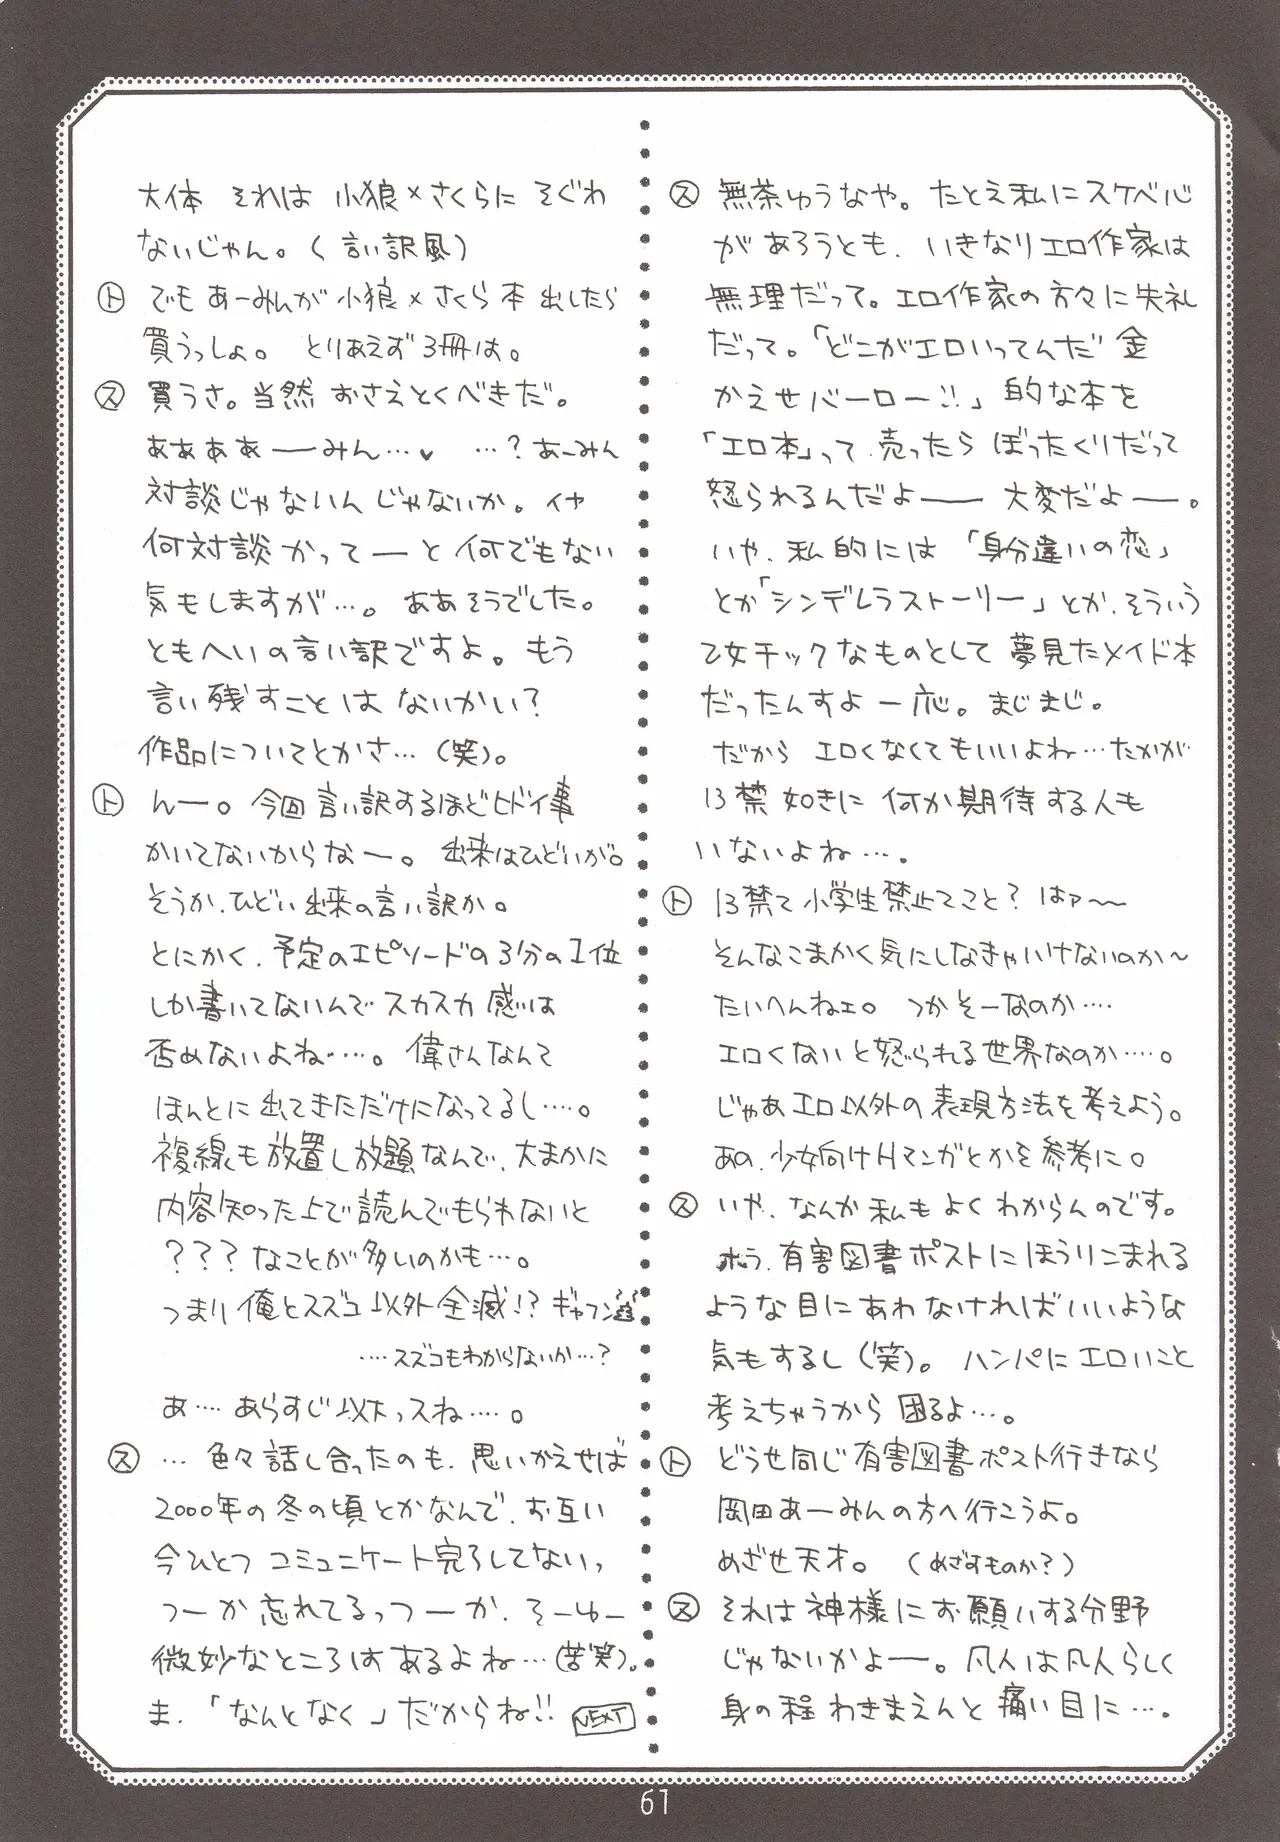 ス 無茶ゆうなや。たとえ私にスケベ心
があろうとも、いきなりエロ作家は
無理だって。エロ作家の方々に失礼
だって。「どこがエロいってんだ 金
かえせバーロー!!」的な本を
「エロ本」って売ったら ぼったくりだって
怒られるんだよ── 大変だよ─。
いや、私的には「身分違いの恋」
とか「シンデレラストーリー」とか、そういう
乙女チックなものとして夢見たメイド本
だったんすよ一応。まじまじ。
だから エロくなくてもいいよね…たかが
13禁如きに 何か期待する人も
いないよね…。
ト 13禁て小学生禁止てこと? はァ〜
そんなこまかく気にしなきゃいけないのか〜
たいへんねェ。つかそーなのか‥‥
エロくないと怒られる世界なのか‥‥。
じゃあエロ以外の表現方法を考えよう。
あの、少女向けHマンガとかを参考に。
ス いや、なんか私もよくわからんのです。
ホラ、有害図書ポストにほうりこまれる
ような目にあわなければいいような
気もするし(笑)。ハンパにエロいこと
考えちゃうから困るよ…。
ト どうせ同じ有害図書ポスト行きなら
岡田あーみんの方へ行こうよ。
めざせ天才。(めざすものか?)
ス それは神様にお願いする分野
じゃないかよ─。凡人は凡人らしく
身の程わきまえんと痛い目に…。
大体 それは 小狼×さくらに そぐわ
ないじゃん。(言い訳風)
ト でも あーみんが小狼×さくら本 出したら
買うっしょ。とりあえず3冊は。
ス 買うさ。当然 おさえとくべきだ。
ああああ──みん…♥ …?あーみん
対談じゃないんじゃないか。イヤ
何対談かって─と何でもない
気もしますが…。ああそうでした。
ともへいの言い訳ですよ。もう
言い残すことは ないかい?
作品についてとかさ…(笑)。
ト ん─。今回言い訳するほどヒドイ事
かいてないからな─。出来はひどいが。
そうか、ひどい出来の言い訳か。
とにかく、予定のエピソードの3分の1位
しか書いてないんでスカスカ感は
否めないよね‥‥。偉さんなんて
ほんとに出てきただけになってるし‥‥。
複線も放置し放題なんで、大まかに
内容知った上で読んでもらわないと
???なことが多いのかも…。
つまり俺とスズコ以外全滅!?ギャフン
‥‥スズコもわからないか…?
あ‥‥あらすじ以下っスね‥‥。
ス …色々話し合ったのも、思いかえせば
2000年の冬の頃とかなんで、お互い
今ひとつコミュニケート完了してないっ
つーか忘れてるっつーか、そーゆー
微妙なところはあるよね…(苦笑)。
ま、「なんとなく」だからね!! NEXT
61